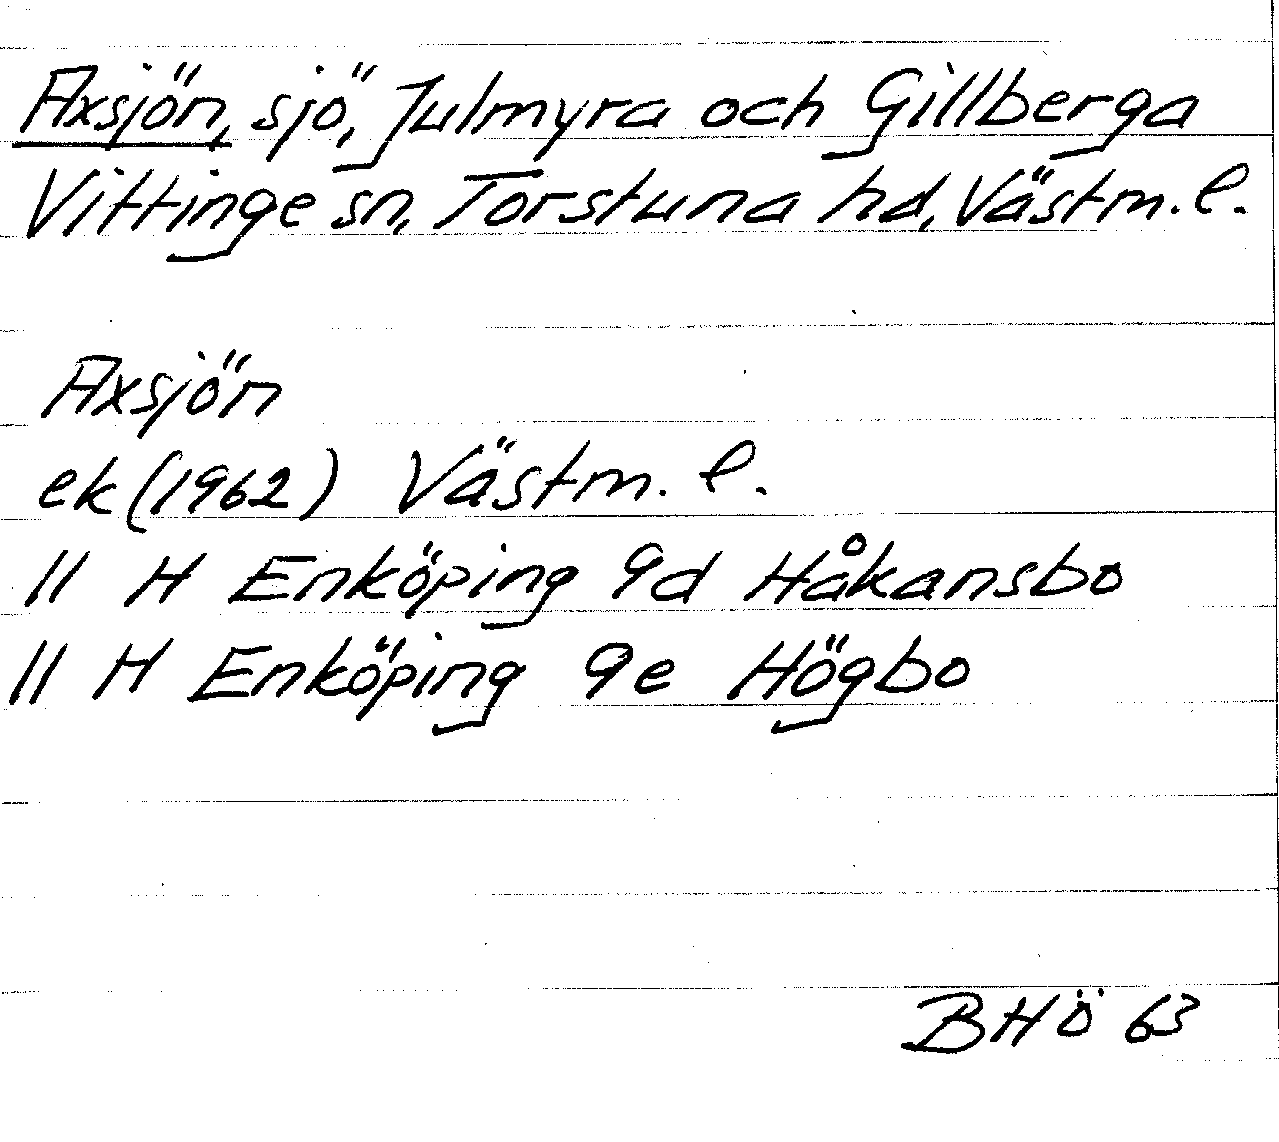 Axsjön, sjö, Julmyra och Gillberga
Vittinge sn, Torstuna hd, Västm. l.
Axsjön
ek (1962) Västm. l.
11 H Enköping 9d Håkansbo
11 H Enköping 9e Högbo
BHÖ 63